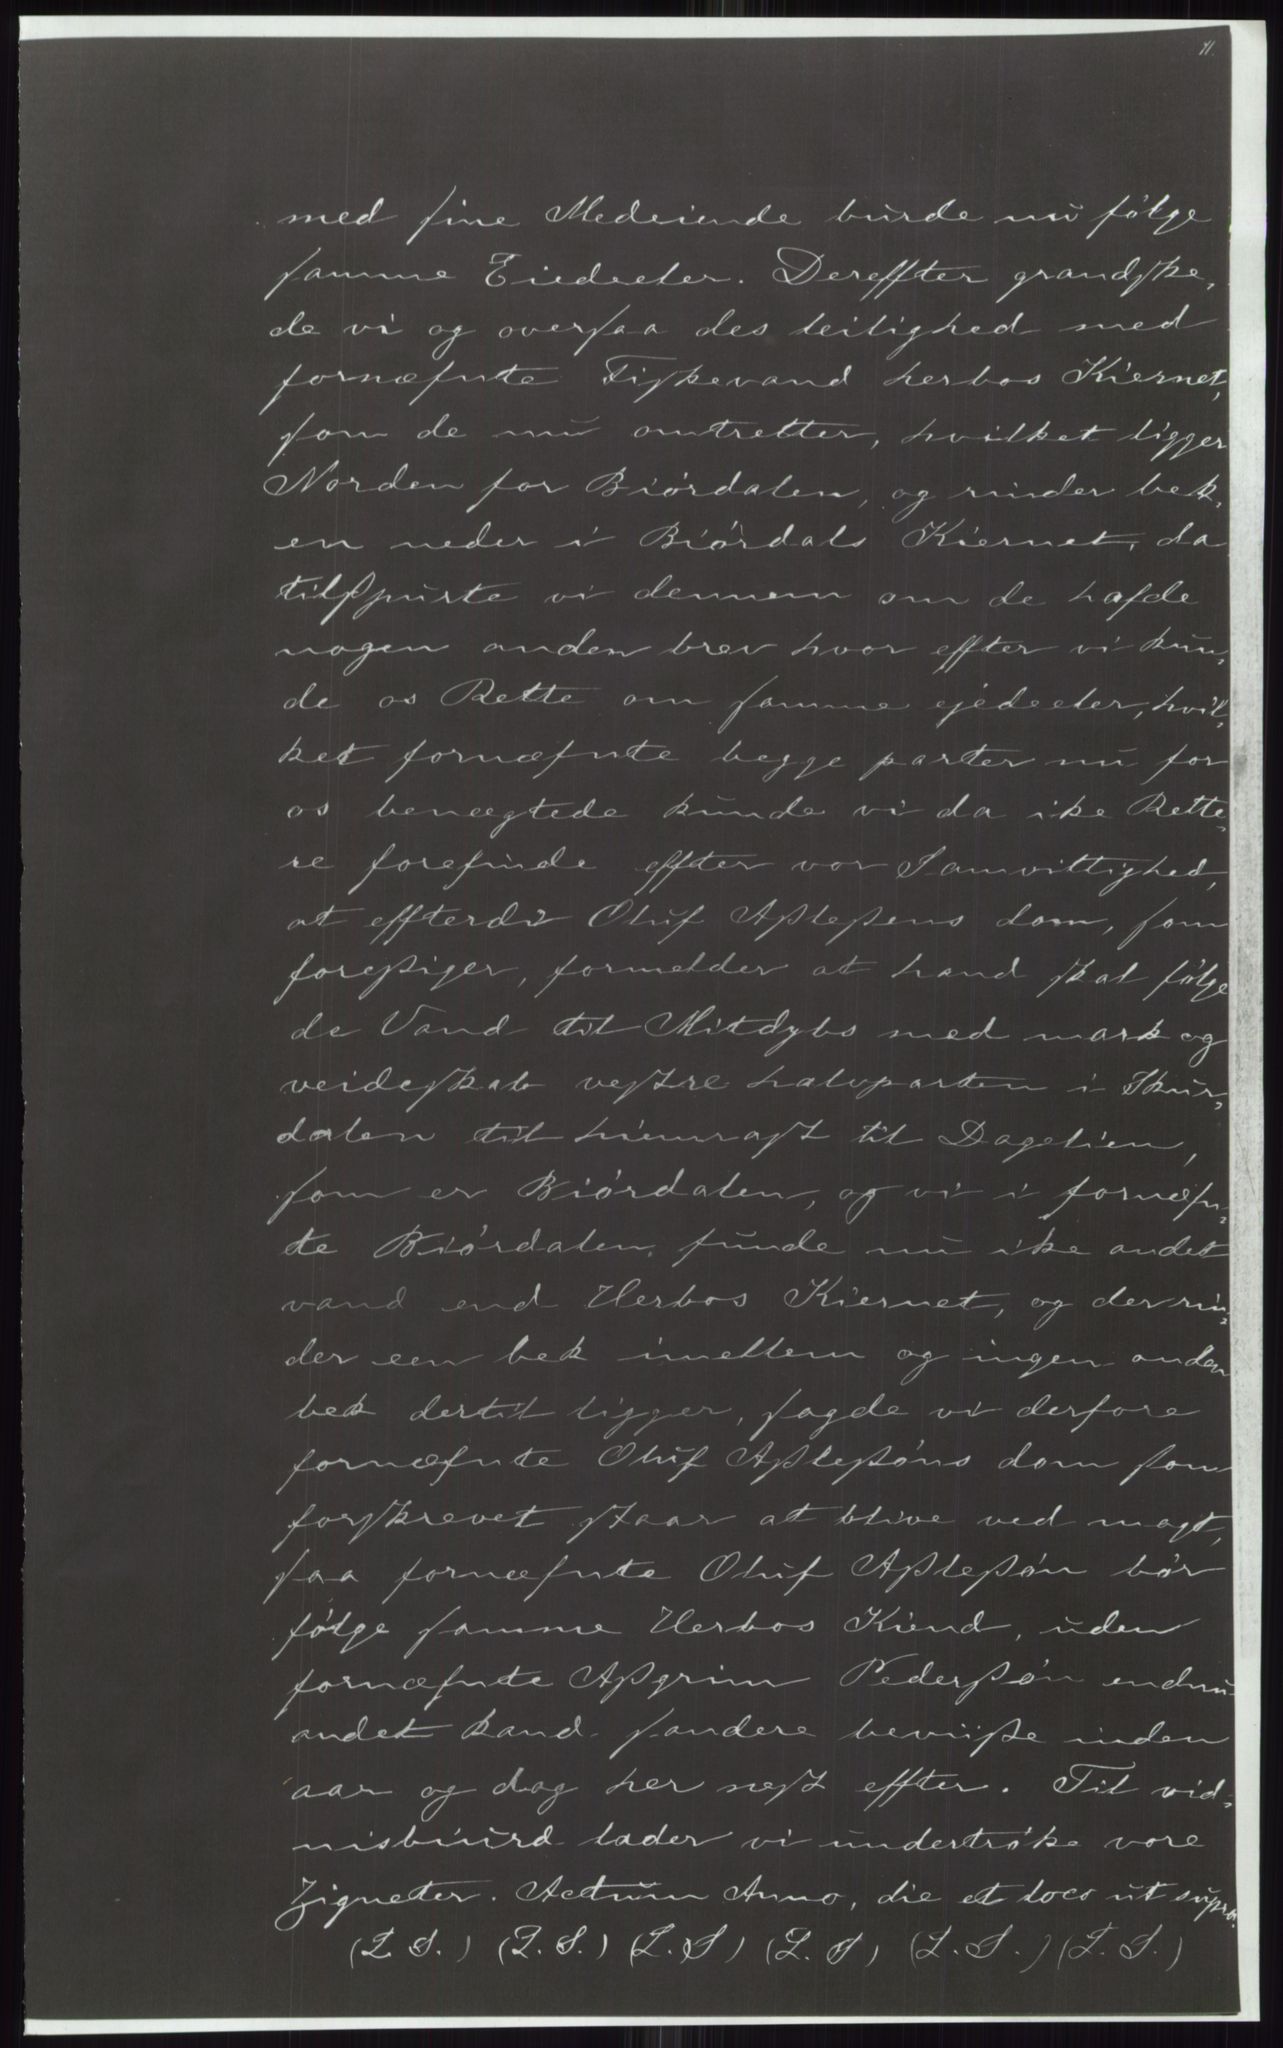 11.
med sine Medeiende burde nu følge
samme Eiedeeler. Dereffter grandske,
de vi og oversaa des leilighed med
fornæfnte Fiskevand herbos Kiernet,
som de nu omtretter, hvilket ligger
Norden for Biørdalen, og rinder bek,
en neder i Biørdals Kiernet, da
tilsspurte vi dennem om de hafde
nogen anden brev hvor effter vi kun,
de os Rette om samme ejedeeler, hvil,
ket fornæfnte begge parter nu for
os benægtede kunde vi da ike Rette,
re forefinde effter vor Samvittighed,
at effterdi Oluf Aslessens dom, som
foressiger, formelder at hand skal følge
de Vand til Mitdybs med mark og
veideskab vestre halvparten i Skur,
dalen til hiemrast til Dagelien,
som er Biørdalen, og vi i fornæfn,
te Biørdalen, funde nu ike andet
vand end Herbos Kiernet, og der rin,
der een bek imellem og ingen anden
bek dertil ligger, sagde vi derfore
fornæfnte Oluf Aslessøns dom som
forskrevet staar at blive ved magt,
saa fornæfnte Oluf Aslessøn bør
følge samme Herbos Kiend, uden
fornæfnte Assgrim Pederssøn endnu
andet kand sandere beviisse inden
aar og dag her nest effter. Til vid,
nisbiurd lader vi undertrøke vore
Zigneter. Actum Anno, die et loco ut supra.
(L. S.) (L. S.) (L. S) (L. S) (L. S.) (L. S.)